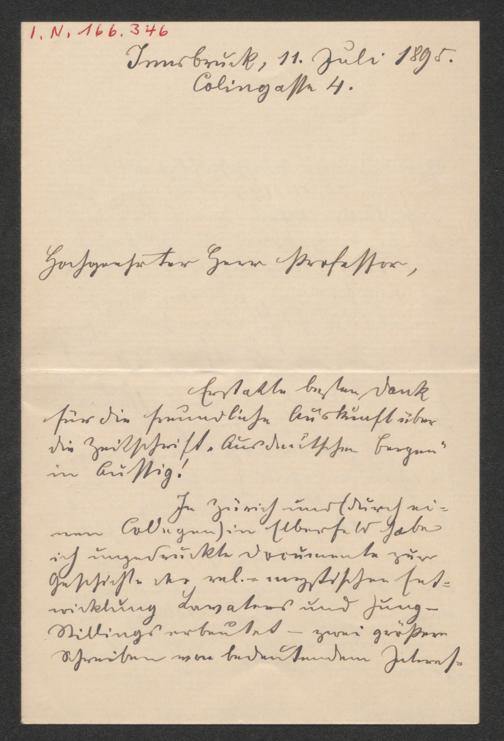 I. N. 166.346
Innsbruck, 11. Juli 1895.
Colingasse 4.
Hochgeehrter Herr Professor,
Erstatte besten Dank
für die freundliche Auskunft über
die Zeitschrift „Aus deutschen Bergen“
in Aussig!
In Zürich und (durch ei-
nen Collegen) in Elberfeld habe
ich ungedruckte Documente zur
Geschichte der rel.-mystischen Ent-
wicklung Lavaters und Jung-
Stillings erbeutet – zwei größere
Schreiben von bedeutendem Interes-